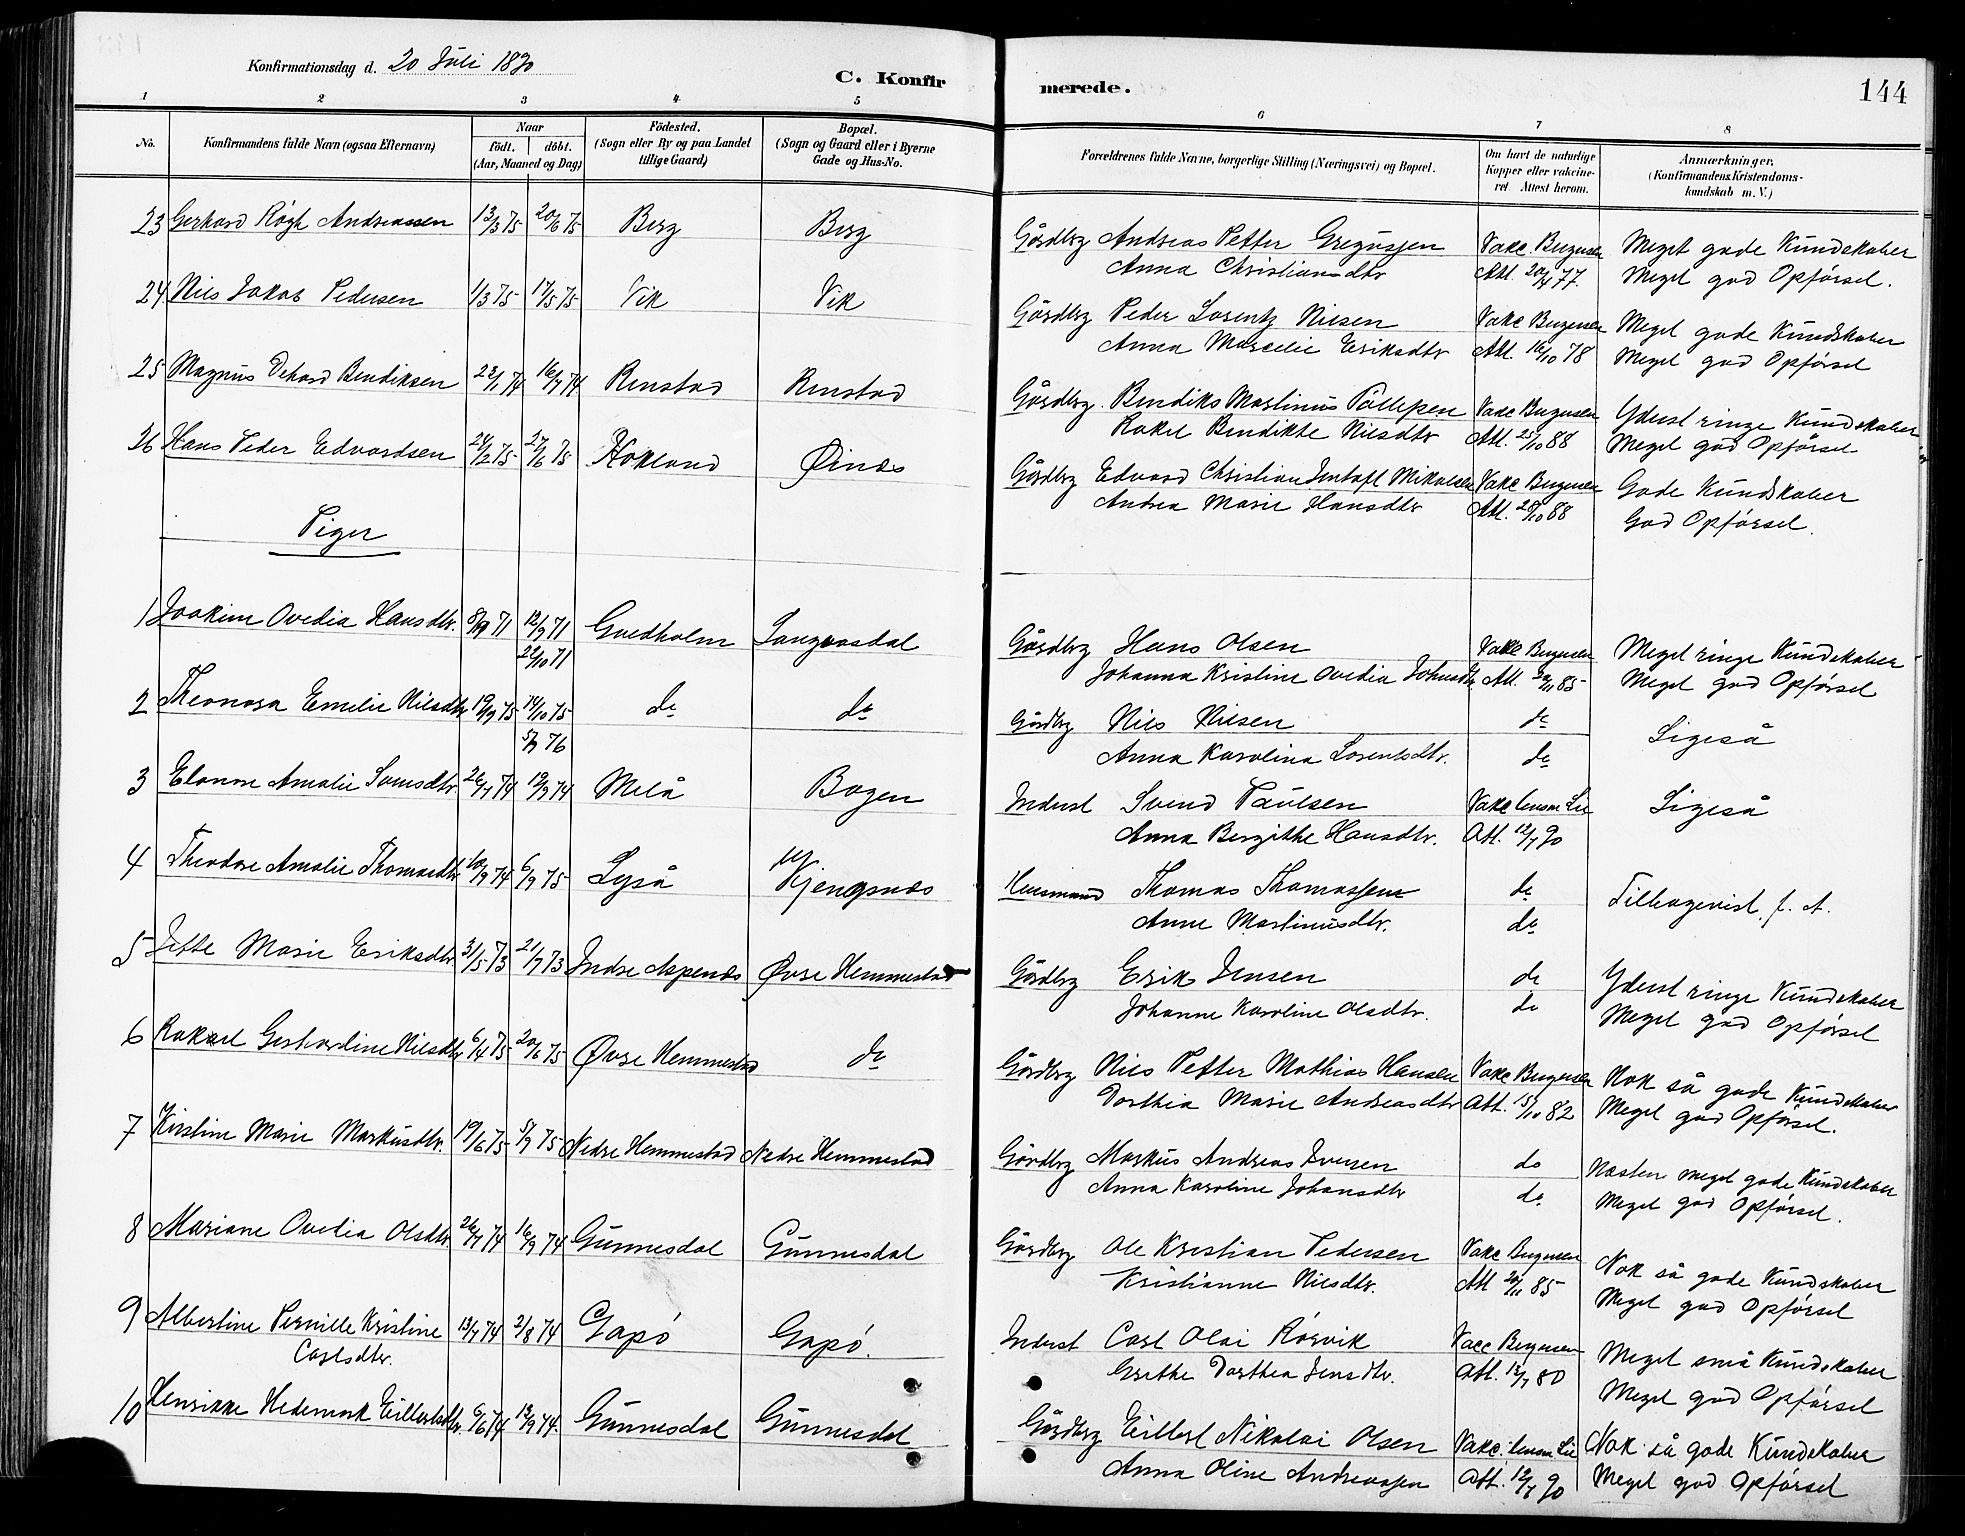 Konfirmationsdag d. 20 Juli 1890
C. Konfirmerede.
144
1 2 3 4 5 6 7 8
No.
Konfirmandens fulde Navn (ogsaa Efternavn)
Naar
født. døbt.
(Aar, Maaned og Dag)
Fødested.
(Sogn eller By og paa Landet tillige Gaard)
Bopæl.
(Sogn og Gaard eller i Byerne Gade og Hus-No.
Forældrenes fulde Navne, borgerlige Stilling (Næringsvei) og Bopæl.
Om havt de naturlige Kopper eller vakcineret. Attest herom.
Anmærkninger.
(Konfirmandens Kristendomskundskab m. V.)
23 Gerhard Andreassen 13/3 75 20/6 75 Berg Berg Gårdbrg Andreas Petter Gregussen Vakc Bergersen Meget gode Kundskaber
Anna Christiansdtr Att. 20/4 77. Meget god Opførsel.
24 Nils Jakob Pedersen 1/3 75 17/5 75 Vik Vik Gårdbrg Peder Lorentz Nilsen Vakc Bergersen Meget gode Kundskaber
Anna Marcelie Eriksdtr Att. 16/10 78 Meget god Opførsel
25 Magnus Bendiksen 23/1 74 16/7 74 Renstad Renstad Gårdbrg. Bendiks Martinus Vakc Bergersen Yderst ringe Kundskaber
Rakel Bendikte Nilsdtr Att. 25/10 88 Meget god Opførsel
26 Hans Peder Edvardsen 24/2 75 27/6 75 Rokland Øines Gårdbrg Edvard Christian Mikalsen Vakc Bergersen Gode Kundskaber
Andrea Marie Hansdtr Att. 28/10 88 God Opførsel.
Piger
1 Joakim Ovedia Hansdtr. 8/9 71 12/9 71 Gredholm Langvasdal Gårdbrg Hans Olsen Vakc Bergersen Meget ringe Kundskaber
22/10 71 Johanna Kristine Ovedia Johnsdtr Att. 20/11 85 Meget god Opførsel
2 Theonora Emelie Nilsdtr 19/9 75 14/10 75 do do Gårdbrg Nils Nilsen do Ligeså
5/7 76 Anna Karolina Lorentsdtr. do
3 Elonore Amalie 26/7 74 19/9 74 Melå Bogen Inderst Svend Paulsen Vakc lensm Lie Ligeså
Anna Bergithe Hansdtr. Att. 12/7 90
4 Theodore Amalie Thomasdtr 10/9 74 6/9 75 Lyså Kjengsnes Husmand Thomas Thomassen do Tilbagevist f. A.
Anne Martinusdtr. do
5 Jette Marie Eriksdtr 31/5 73 21/7 73 Indre Aspenes Øvre Hemmestad Gårdbrg Erik Jensen do Yderst ringe Kundskaber
Johanne Karoline Olsdtr. do Meget god Opførsel
6 Rakel Gerhardine Nilsdtr 6/4 75 20/6 75 Øvre Hemmestad do Gårdbrg Nils Petter Mathias Hansen Vakc Bergersen Nok så gode Kundskaber
Dorthea Marie Andreasdtr Att. 15/10 82 Meget god Opførsel.
7 Kirstine Marie Markusdtr. 19/6 75 5/9 75 Nedre Hemmestad Nedre Hemmestad Gårdbrg Markus Andreas Iversen do Næsten meget gode Kundskaber
Anna Karoline Johansdtr do. Meget god Opførsel.
8 Mariane Ovedia Olsdtr 26/7 74 16/9 74 Gunnesdal Gunnesdal Gårdbrg Ole Kristian Pedersen Vakc Bergersen Nok så gode Kundskaber
Kristianne Nilsdtr. Att 20/11 85 Meget god Opførsel
9 Albertine Pernille Kristine 13/7 74 2/8 74 Gapø Gapø. Inderst Carl Olai Rørvik Vacc Bergersen Meget små Kundskaber
Carlsdtr. Grethe Dorthea Jensdtr. Att. 12/7 80 Meget god Opførsel
10 Henrikke Hedemark Eilertsdtr. 6/6 74 13/9 74. Gunnesdal Gunnesdal Gårdbrg Eilert Nikolai Olsen Vakc. lensm Lie Nok så gode Kundskaber
Anna Oline Andreassen Att. 12/7 90 Meget god Opførsel